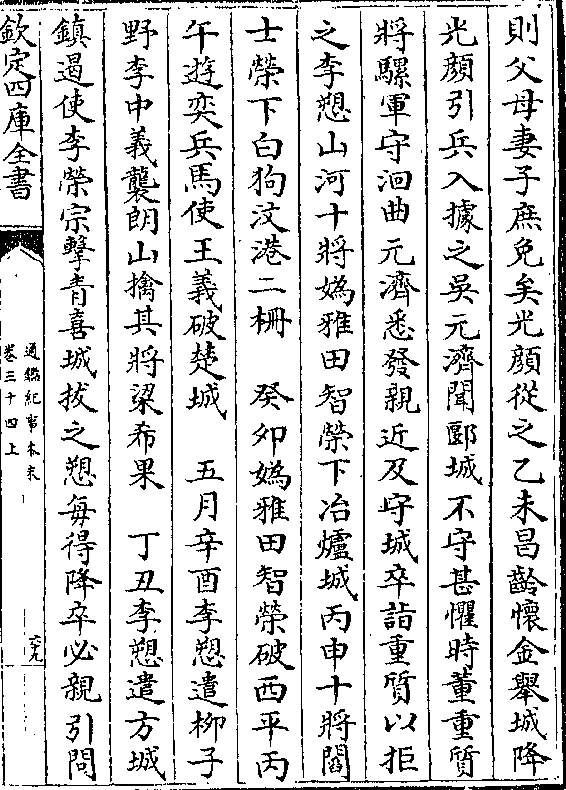 則父母妻子庶免矣光顔從之乙未昌齡懷金舉城降
光顔引兵入據之吳元濟聞郾城不守甚懼時董重質
將騾軍守洄曲元濟悉發親近及守城卒詣重質以拒
之李愬山河十將媯雅田智榮下冶爐城丙申十將閻
士榮下白狗汶港二柵 癸卯媯雅田智榮破西平丙
午遊奕兵馬使王義破楚城 五月辛酉李愬遣柳子
野李中義襲朗山擒其將梁希果 丁丑李愬遣方城
鎮遏使李榮宗擊青喜城拔之愬每得降卒必親引問
欽定四庫全書
通鑑紀事本末
卷三十四上
六九